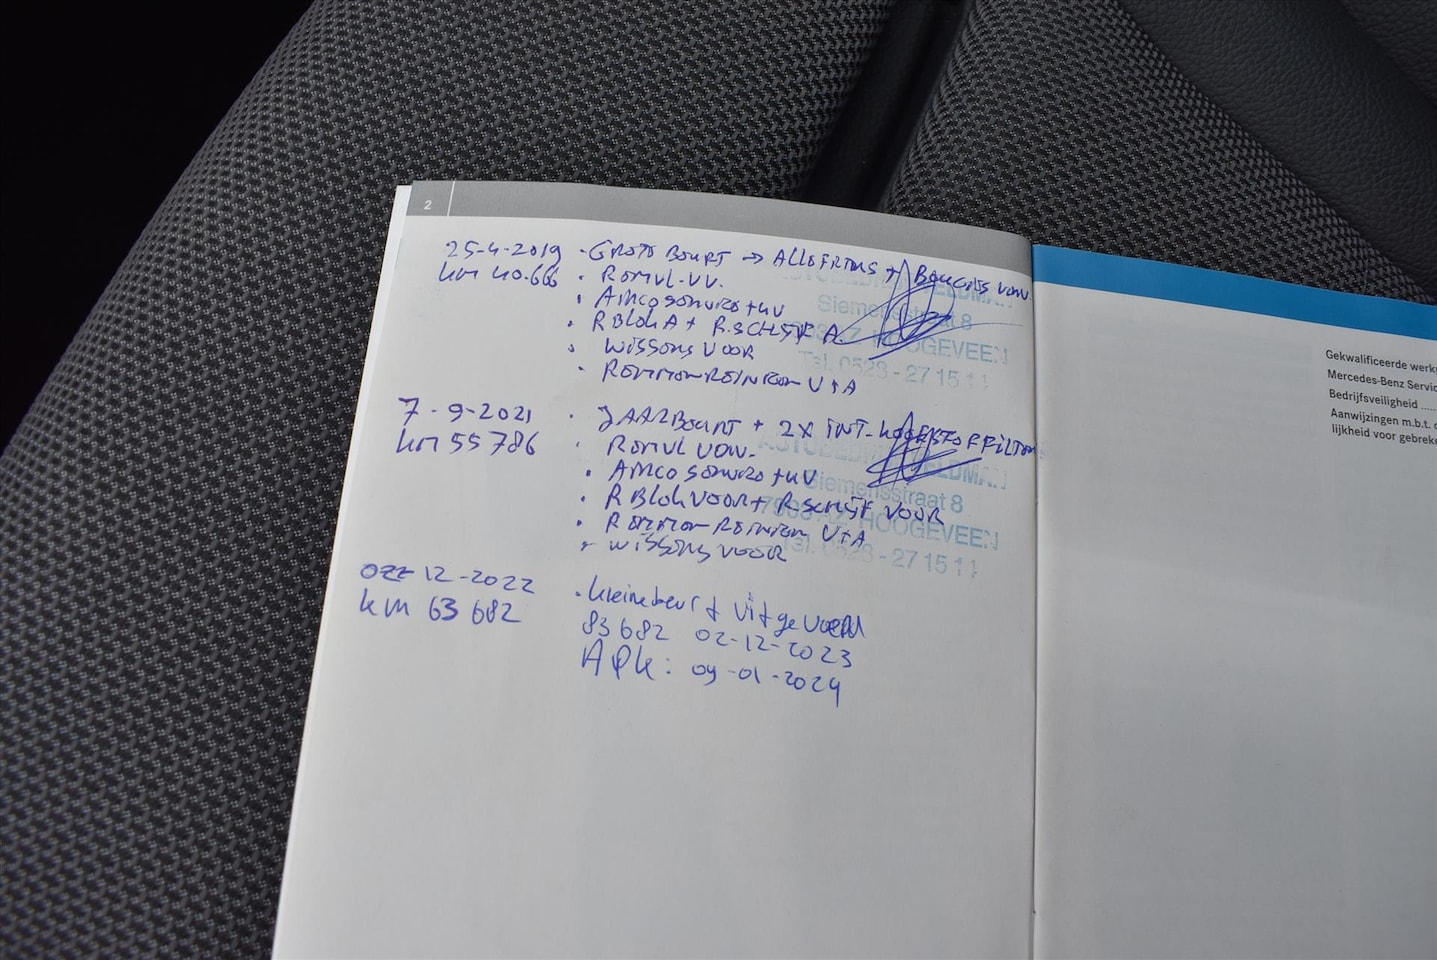 2
25-4-2019 · GROTE BEURT → ALLE FILTERS + BOUGIES VERV.
km 40.666 · REMVL. VV.
· AIRCO SERVICE + UV
· R BLOK A + R.SCHIJF A.
· WISSERS VOOR
· REMMEN REINIGEN V+A
Siemensstraat 8
HOOGEVEEN
Tel. 0528 - 27 15 11
7-9-2021 · JAARBEURT + 2X INT-
km 55786 · REMVL VERV.
· AIRCO SERVICE + UV
· R BLOK VOOR + R.SCHIJF VOOR
· REMMEN REINIGEN V+A
· WISSERS VOOR
VELDMAN
Siemensstraat 8
HOOGEVEEN
Tel. 0528 - 27 15 11
12-2022 · kleine beurt uitgevoerd
km 63 682 83682 02-12-2023
APK: 09-01-2024
Gekwalificeerde werk
Mercedes-Benz Servic
Bedrijfsveiligheid ......
Aanwijzingen m.b.t. d
lijkheid voor gebreke